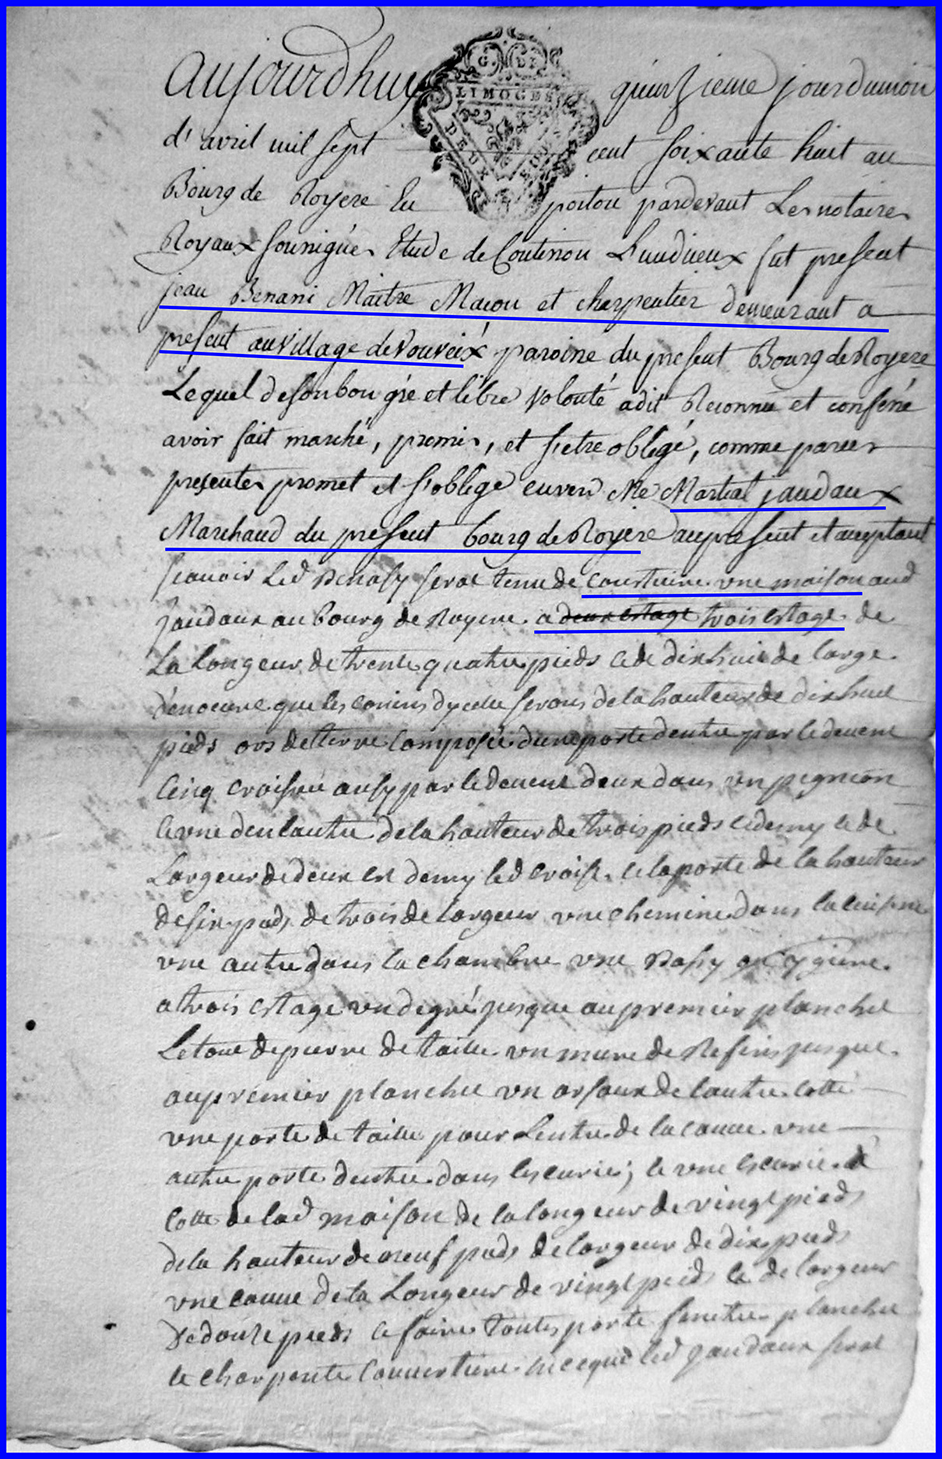 aujourdhuy quinzieme jour du mois
G. DE
LIMOGES
DEUX
d'avril mil sept cent soixante huit au
Bourg de Royere En poitou pardevant Les notaires
Royaux soussignés Etude de fut present
jean Benassi Maitre Macon et charpentier demeurant a
present au village de Vouveix paroisse du present Bourg de Royere
Lequel de son bon gré et libre volonté a dit Reconnu et confessé
avoir fait marché, promis, et s'etre obligé, comme par ces
presentes promet et s'oblige envers Me Martial jandaux
Marchand du present bourg de Royere au present et acceptant
scavoir Led Benassy serat tenu de une maison aud
Jandaux au bourg de Royere a deux estage trois estage de
La Longeur de trente quatre pieds et de dix huit de large
que les de la hauteur de dix huit
pieds composée d'une porte dentre par le devent
Cinq croisée ausy par le devent deux dans un pignion
et une den lautre de la hauteur de trois pieds et demy et de
Largeur de deux et demy led croise et la porte de la hauteur
de six pieds de trois de Largeur une chemine dans la cuisine
une autre dans la chambre une
a trois estage un degré jusque au premier planché
Le tout de pierre de taille un mure de jusque
au premier planché un de lautre cotté
une porte de taille pour Lentre de la cauve une
autre porte dentre dans lescurie; et une escurie a
Cotte de lad maison de la longeur de vingt pieds
de la hauteur de neuf pieds de largeur de dix pieds
une cauve de la Longeur de vingt pieds et de largeur
de douze pieds et faire toutes porte fenetre planché
et charpente led Jandaux serat